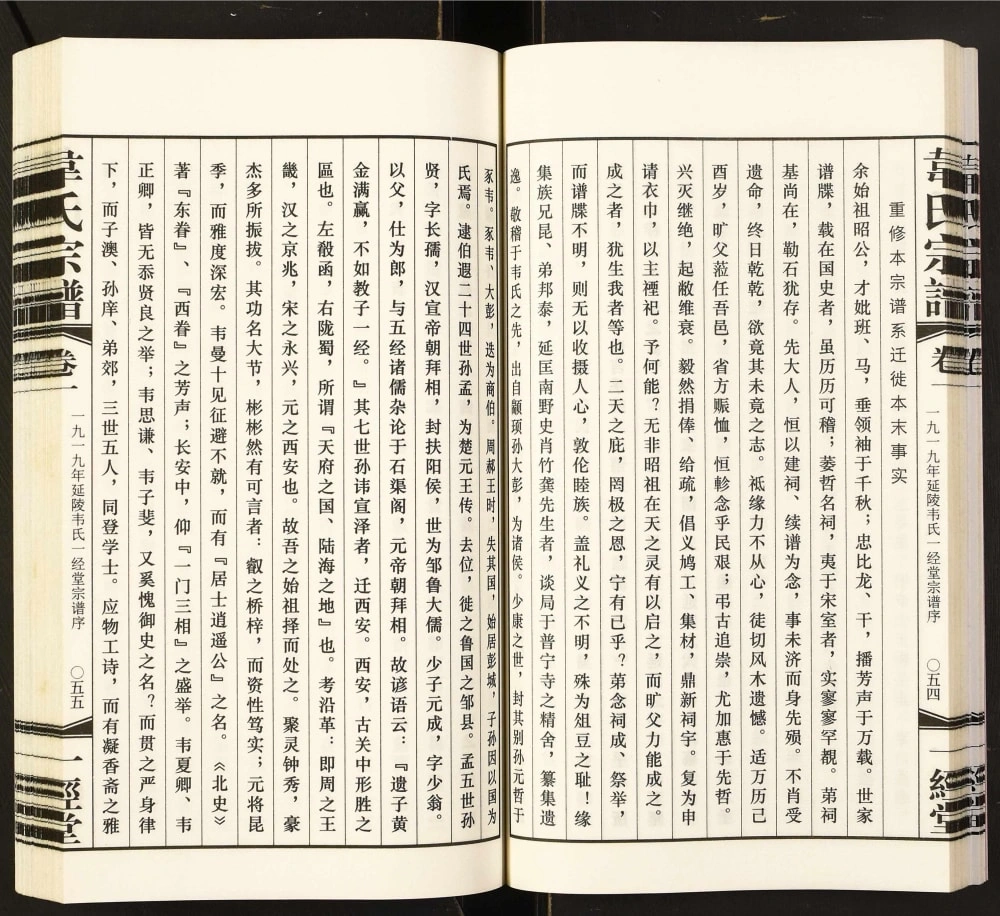 韋氏宗譜
卷一
一九一九年延陵韦氏一经堂宗谱序
〇五四
一經堂
重修本宗谱系迁徙本末事实
余始祖昭公，才妣班、马，垂领袖于千秋；忠比龙、干，播芳声于万载。世家
谱牒，载在国史者，虽历历可稽；萎哲名祠，夷于宋室者，实寥寥罕觏。第祠
基尚在，勒石犹存。先大人，恒以建祠、续谱为念，事未济而身先殒。不肖受
遗命，终日乾乾，欲竟其未竟之志。祇缘力不从心，徒切风木遗憾。适万历己
酉岁，旷父蒞任吾邑，省方赈恤，恒轸念乎民艰；弔古追崇，尤加惠于先哲。
兴灭继绝，起敝维衰。毅然捐俸、给疏，倡义鸠工、集材，鼎新祠宇。复为申
请衣巾，以主禋祀。予何能？无非昭祖在天之灵有以启之，而旷父力能成之。
成之者，犹生我者等也。二天之庇，罔极之恩，宁有已乎？第念祠成、祭举，
而谱牒不明，则无以收摄人心，敦伦睦族。盖礼义之不明，殊为俎豆之耻！缘
集族兄昆、弟邦泰，延匡南野史肖竹龚先生者，谈局于普宁寺之精舍，纂集遗
逸。敬稽于韦氏之先，出自颛顼孙大彭，为诸侯。少康之世，封其别孙元哲于
豕韦。豕韦、大彭，迭为商伯。周赧王时，失其国，始居彭城，子孙因以国为
氏焉。逮伯遐二十四世孙孟，为楚元王传。去位，徙之鲁国之邹县。孟五世孙
贤，字长孺，汉宣帝朝拜相，封扶阳侯，世为邹鲁大儒。少子元成，字少翁。
以父，仕为郎，与五经诸儒杂论于石渠阁，元帝朝拜相。故谚语云：『遗子黄
金满赢，不如教子一经。』其七世孙讳宣泽者，迁西安。西安，古关中形胜之
區也。左殽函，右陇蜀，所谓『天府之国、陆海之地』也。考沿革：即周之王
畿，汉之京兆，宋之永兴，元之西安也。故吾之始祖择而处之。聚灵钟秀，豪
杰多所振拔。其功名大节，彬彬然有可言者：叡之桥梓，而资性笃实；元将昆
季，而雅度深宏。韦曼十见征避不就，而有『居士逍遥公』之名。《北史》
著『东眷』、『西眷』之芳声；长安中，仰『一门三相』之盛举。韦夏卿、韦
正卿，皆无忝贤良之举；韦思谦、韦子斐，又奚愧御史之名？而贯之严身律
下，而子澳、孙庠、弟郊，三世五人，同登学士。应物工诗，而有凝香斋之雅
韋氏宗譜
卷一
一九一九年延陵韦氏一经堂宗谱序
〇五五
一經堂